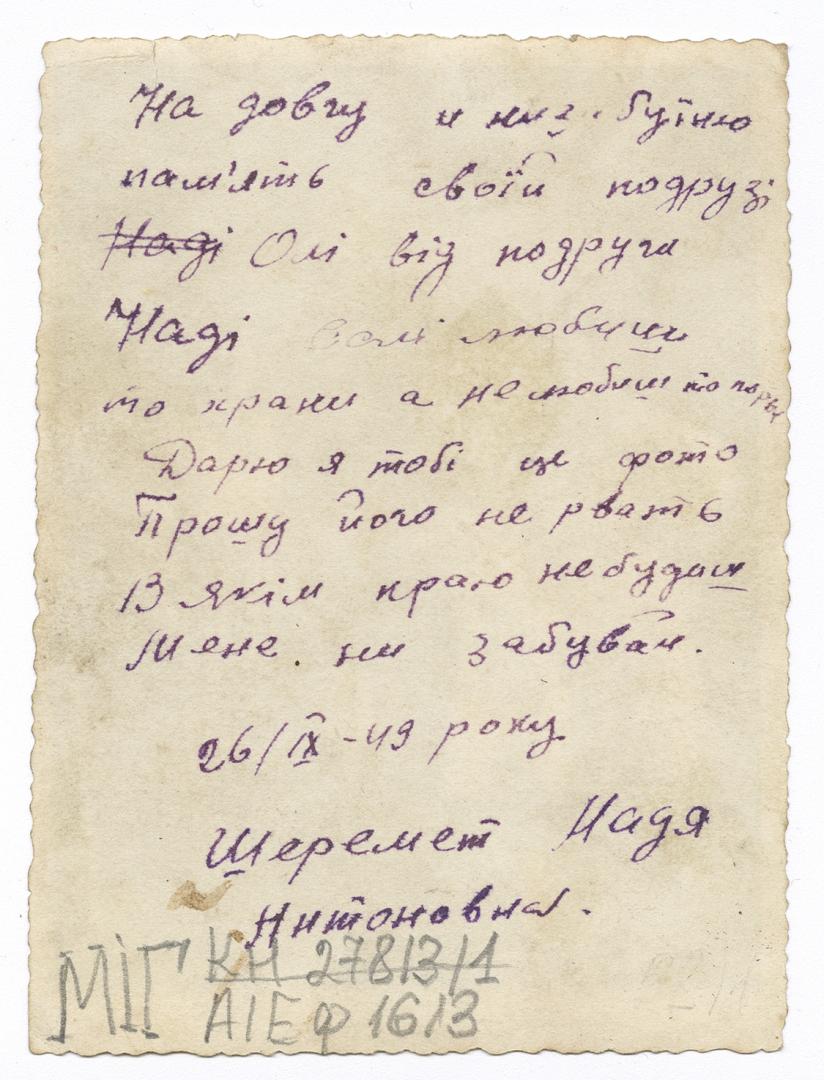 На довгу и низ буїню
пам'ять своїй подрузі
Наді Олі від подруги
Наді любиш
то храни а не любиш то порви
Дарю я тобі це фото
Прошу його не рвать
В якім краю не будиш
Мене ни забувай.
26/IX-49 року
Шеремет Надя
Антоновна.
МІГ КН 27813/1
АІЕФ 1613